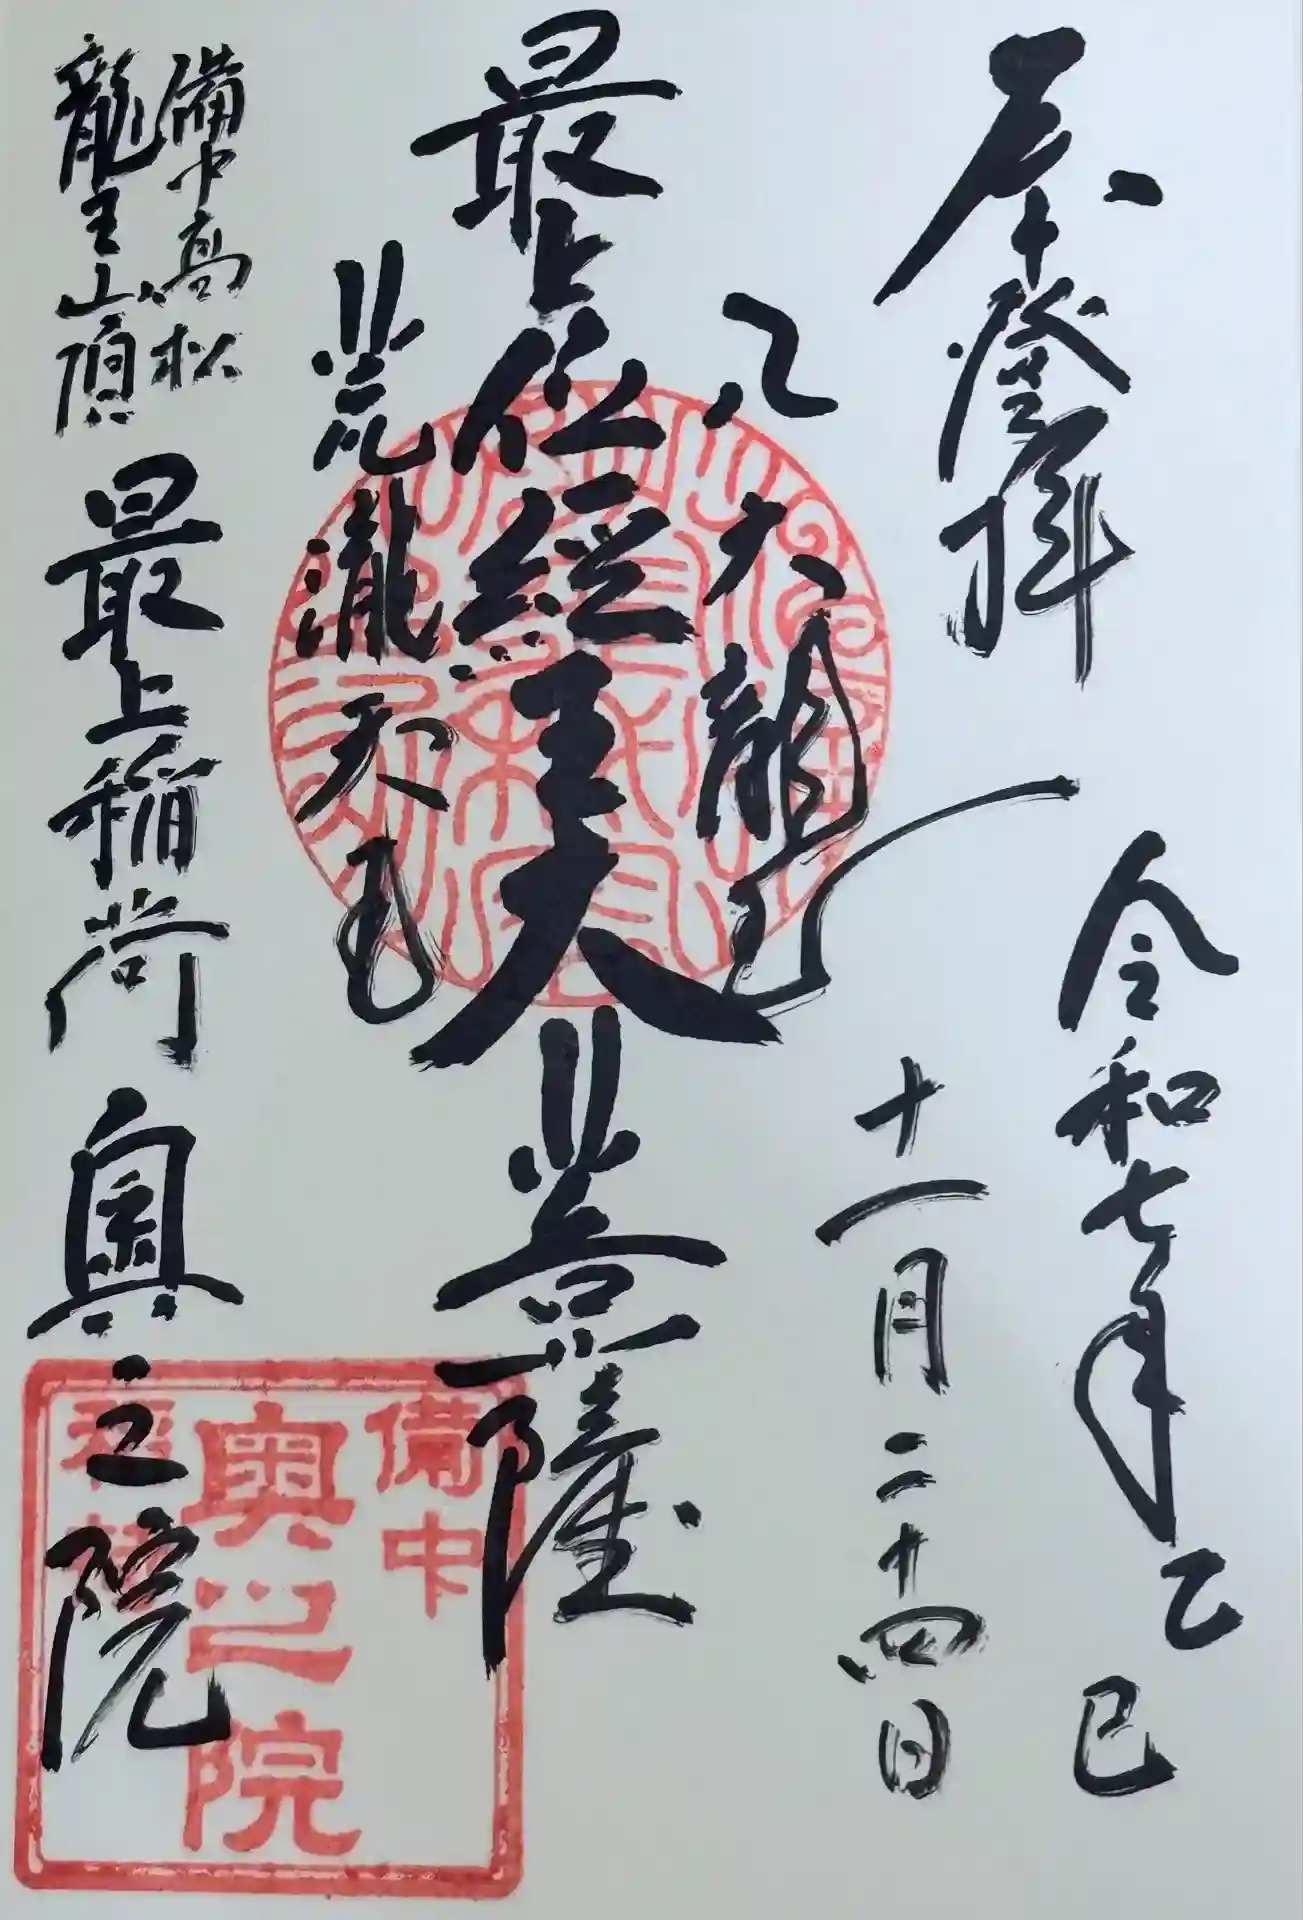 奉登拝
令和七年乙巳
十一月二十四日
八大龍王
最上位経王大菩薩
荒瀧天王
備中高松
龍王山頂
最上稲荷奥之院
備中
奥之院